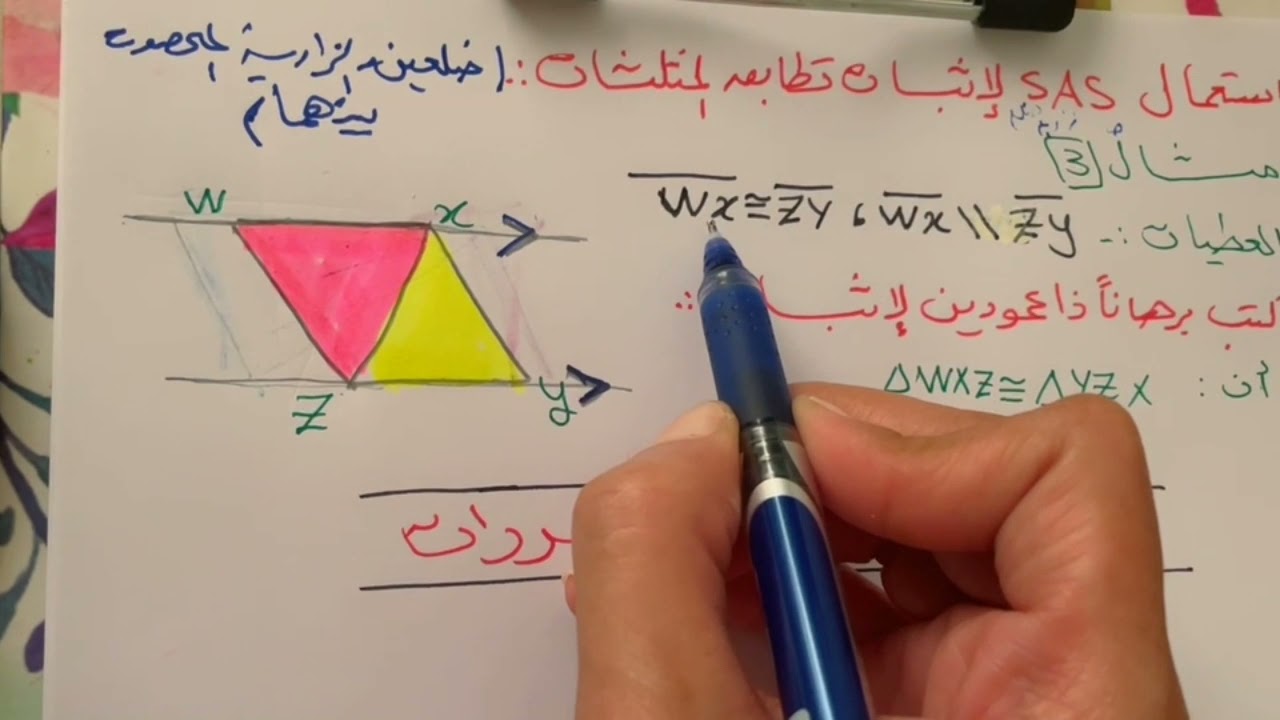 استعمال SAS لإثبات تطابق المثلثات :. (ضلعين والزاوية المحصورة
بينهما)
مثال [3]
المعطيات :- WX ≅ ZY ، WX \\ ZY
اكتب برهاناً ذا عمودين لإثبات :.
أن : ΔWXZ ≅ ΔYZX
W
X
Z
y